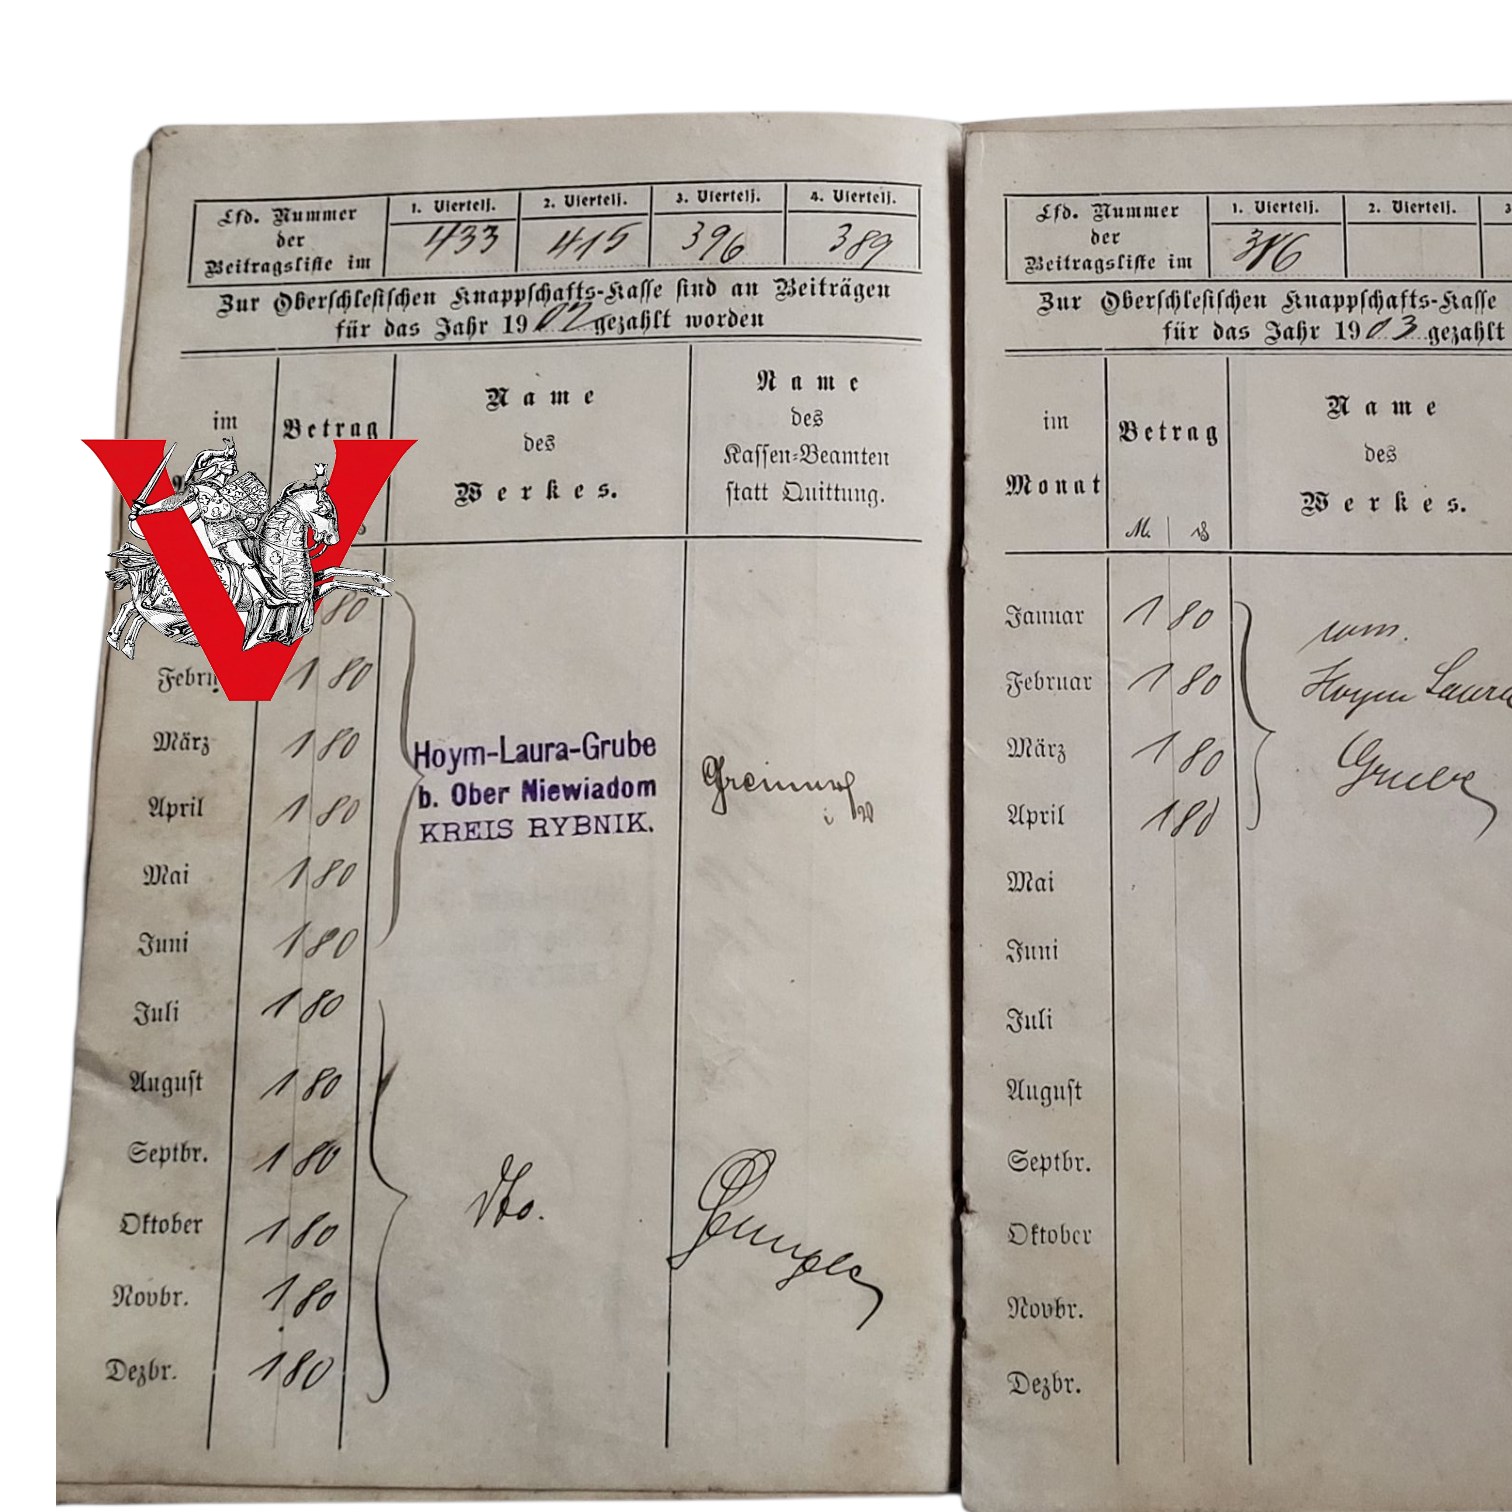 Lfd. Nummer
der
Beitragsliste im
1. Viertelj. 2. Viertelj. 3. Viertelj. 4. Viertelj.
433 415 396 389
Zur Oberschlesischen Knappschafts-Kasse sind an Beiträgen
für das Jahr 1902 gezahlt worden
im
Betrag
Name
des
Werkes.
Name
des
Kassen-Beamten
statt Quittung.
V
80
Febru 1 80
März 1 80
April 1 80
Mai 1 80
Juni 1 80
Hoym-Laura-Grube
b. Ober Niewiadom
KREIS RYBNIK.
Juli 1 80
August 1 80
Septbr. 1 80
Oktober 1 80
Novbr. 1 80
Dezbr. 1 80
dto.
Lfd. Nummer
der
Beitragsliste im
1. Viertelj. 2. Viertelj. 3
Zur Oberschlesischen Knappschafts-Kasse
für das Jahr 1903 gezahlt
im
Monat
Betrag
M. ₰
Name
des
Werkes.
Januar 1 80
Februar 1 80
März 1 80
April 1 80
Mai
Juni
Juli
August
Septbr.
Oktober
Novbr.
Dezbr.
Hoym Laura
Grube